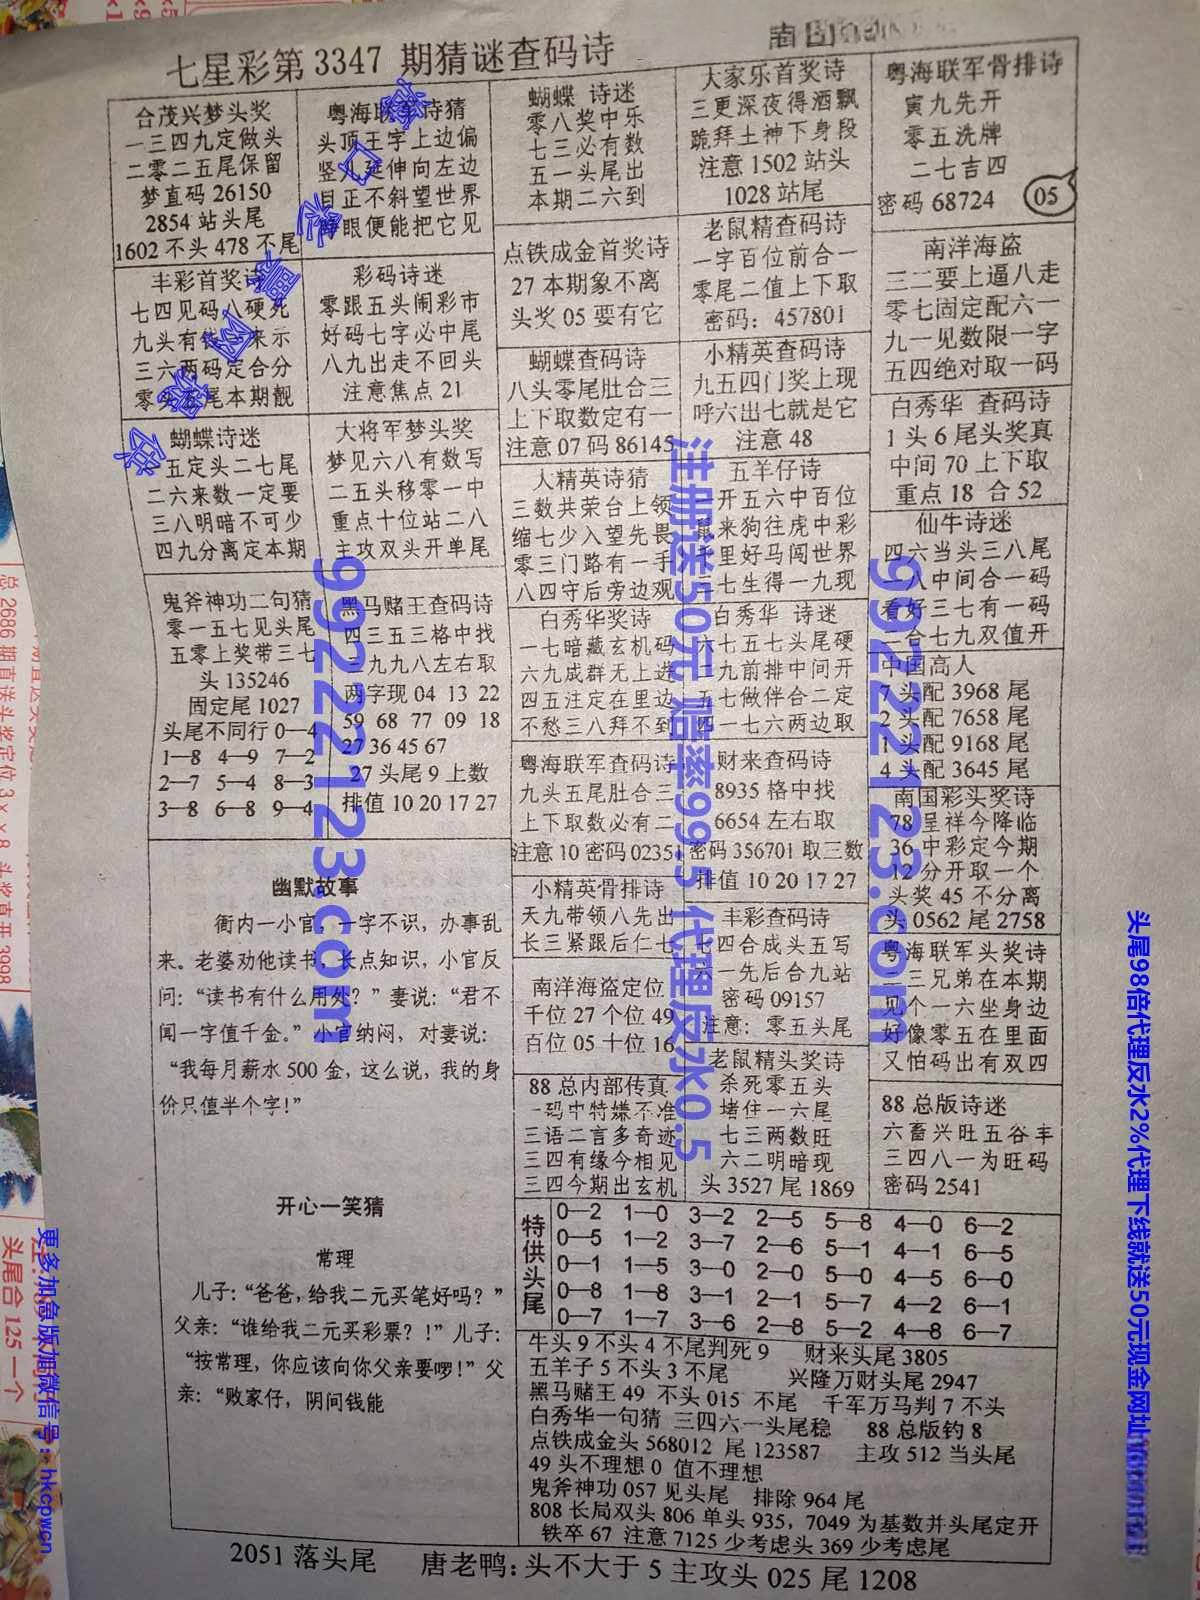 七星彩第3347 期猜谜查码诗
合茂兴梦头奖
一三四九定做头
二零二五尾保留
梦直码26150
2854站头尾
1602不头478不尾
丰彩首奖诗
七四见码八硬死
九头有 来示
三六两码定合分
零头 尾本期靓
蝴蝶诗迷
五定头二七尾
二六来数一定要
三八明暗不可少
四九分离定本期
鬼斧神功二句猜
零一五七见头尾
五零上奖带三七
头135246
固定尾1027
头尾不同行0—4
1—8 4—9 7—2
2—7 5—4 8—3
3—8 6—8 9—4
粤海联军诗猜
头顶王字上边偏
竖儿延伸向左边
目正不斜望世界
睁眼便能把它见
彩码诗迷
零跟五头闹彩市
好码七字必中尾
八九出走不回头
注意焦点21
大将军梦头奖
梦见六八有数写
二五头移零一中
重点十位站二八
主攻双头开单尾
黑马赌王查码诗
四三五三格中找
三九九八左右取
两字现04 13 22
59 68 77 09 18
27 36 45 67
27头尾9上数
排值10 20 17 27
幽默故事
衙内一小官，一字不识，办事乱
来。老婆劝他读书，长点知识，小官反
问：“读书有什么用处？”妻说：“君不
闻一字值千金。”小官纳闷，对妻说：
“我每月薪水500金，这么说，我的身
价只值半个字！”
开心一笑猜
常理
儿子：“爸爸，给我二元买笔好吗？”
父亲：“谁给我二元买彩票？！”儿子：
“按常理，你应该向你父亲要啰！”父
亲：“败家仔，阴间钱能
蝴蝶 诗迷
零八奖中乐
七三必有数
五一头尾出
本期二六到
点铁成金首奖诗
27本期象不离
头奖05要有它
蝴蝶查码诗
八头零尾肚合三
上下取数定有一
注意07码86145
大精英诗猜
三数共荣台上领
缩七少入望先畏
零三门路有一手
八四守后旁边观
白秀华奖诗
一七暗藏玄机码
六九成群无上进
四五注定在里边
不愁三八拜不到
粤海联军查码诗
九头五尾肚合三
上下取数必有二
注意10密码02351
小精英骨排诗
天九带领八先出
长三紧跟后仁七
南洋海盗定位
千位27个位49
百位05十位16
88总内部传真
一码中特嫌不准
三语二言多奇迹
三四有缘今相见
三四今期出玄机
大家乐首奖诗
三更深夜得酒飘
跪拜土神下身段
注意1502站头
1028站尾
老鼠精查码诗
一字百位前合一
零尾二值上下取
密码：457801
小精英查码诗
九五四门奖上现
呼六出七就是它
注意48
五羊仔诗
一开五六中百位
鼠来狗往虎中彩
千里好马闯世界
三七生得一九现
白秀华 诗迷
六七五七头尾硬
二九前排中间开
五七做伴合二定
四一七六两边取
财来查码诗
8935格中找
6654左右取
密码356701取三数
排值10 20 17 27
丰彩查码诗
七四合成头五写
六一先后合九站
密码09157
注意：零五头尾
老鼠精头奖诗
杀死零五头
堵住一六尾
七三两数旺
六二明暗现
头3527尾1869
粤海联军骨排诗
寅九先开
零五洗牌
二七吉四
密码68724
05
南洋海盗
三二要上逼八走
零七固定配六一
九一见数限一字
五四绝对取一码
白秀华 查码诗
1头6尾头奖真
中间70上下取
重点18 合52
仙牛诗迷
四六当头三八尾
一八中间合一码
看好三七有一码
二合七九双值开
中国高人
7头配3968尾
2头配7658尾
1头配9168尾
4头配3645尾
南国彩头奖诗
78呈祥今降临
36中彩定今期
12分开取一个
头奖45不分离
头0562尾2758
粤海联军头奖诗
二三兄弟在本期
见个一六坐身边
好像零五在里面
又怕码出有双四
88总版诗迷
六畜兴旺五谷丰
三四八一为旺码
密码2541
特供头尾
0—2 1—0 3—2 2—5 5—8 4—0 6—2
0—5 1—2 3—7 2—6 5—1 4—1 6—5
0—1 1—5 3—0 2—0 5—0 4—5 6—0
0—8 1—8 3—1 2—1 5—7 4—2 6—1
0—7 1—7 3—6 2—8 5—2 4—8 6—7
牛头9不头4不尾判死9 财来头尾3805
五羊子5不头3不尾 兴隆万财头尾2947
黑马赌王49 不头015 不尾 千军万马判7不头
白秀华一句猜 三四六一头尾稳 88总版钓8
点铁成金头568012 尾123587 主攻512当头尾
49头不理想0 值不理想
鬼斧神功057见头尾 排除964尾
808长局双头806单头935，7049为基数并头尾定开
铁卒67 注意7125少考虑头369少考虑尾
2051落头尾 唐老鸭：头不大于5主攻头025尾1208
99222123.com
注册送50元 赔率99.5 代理反水0.5
99222123.com
头尾98倍代理反水2%代理下线就送50元现金网址
更多加急版加微信号：hkcpwcn
总2686期直送头奖定位3××8头奖直开3998
头尾合125一个